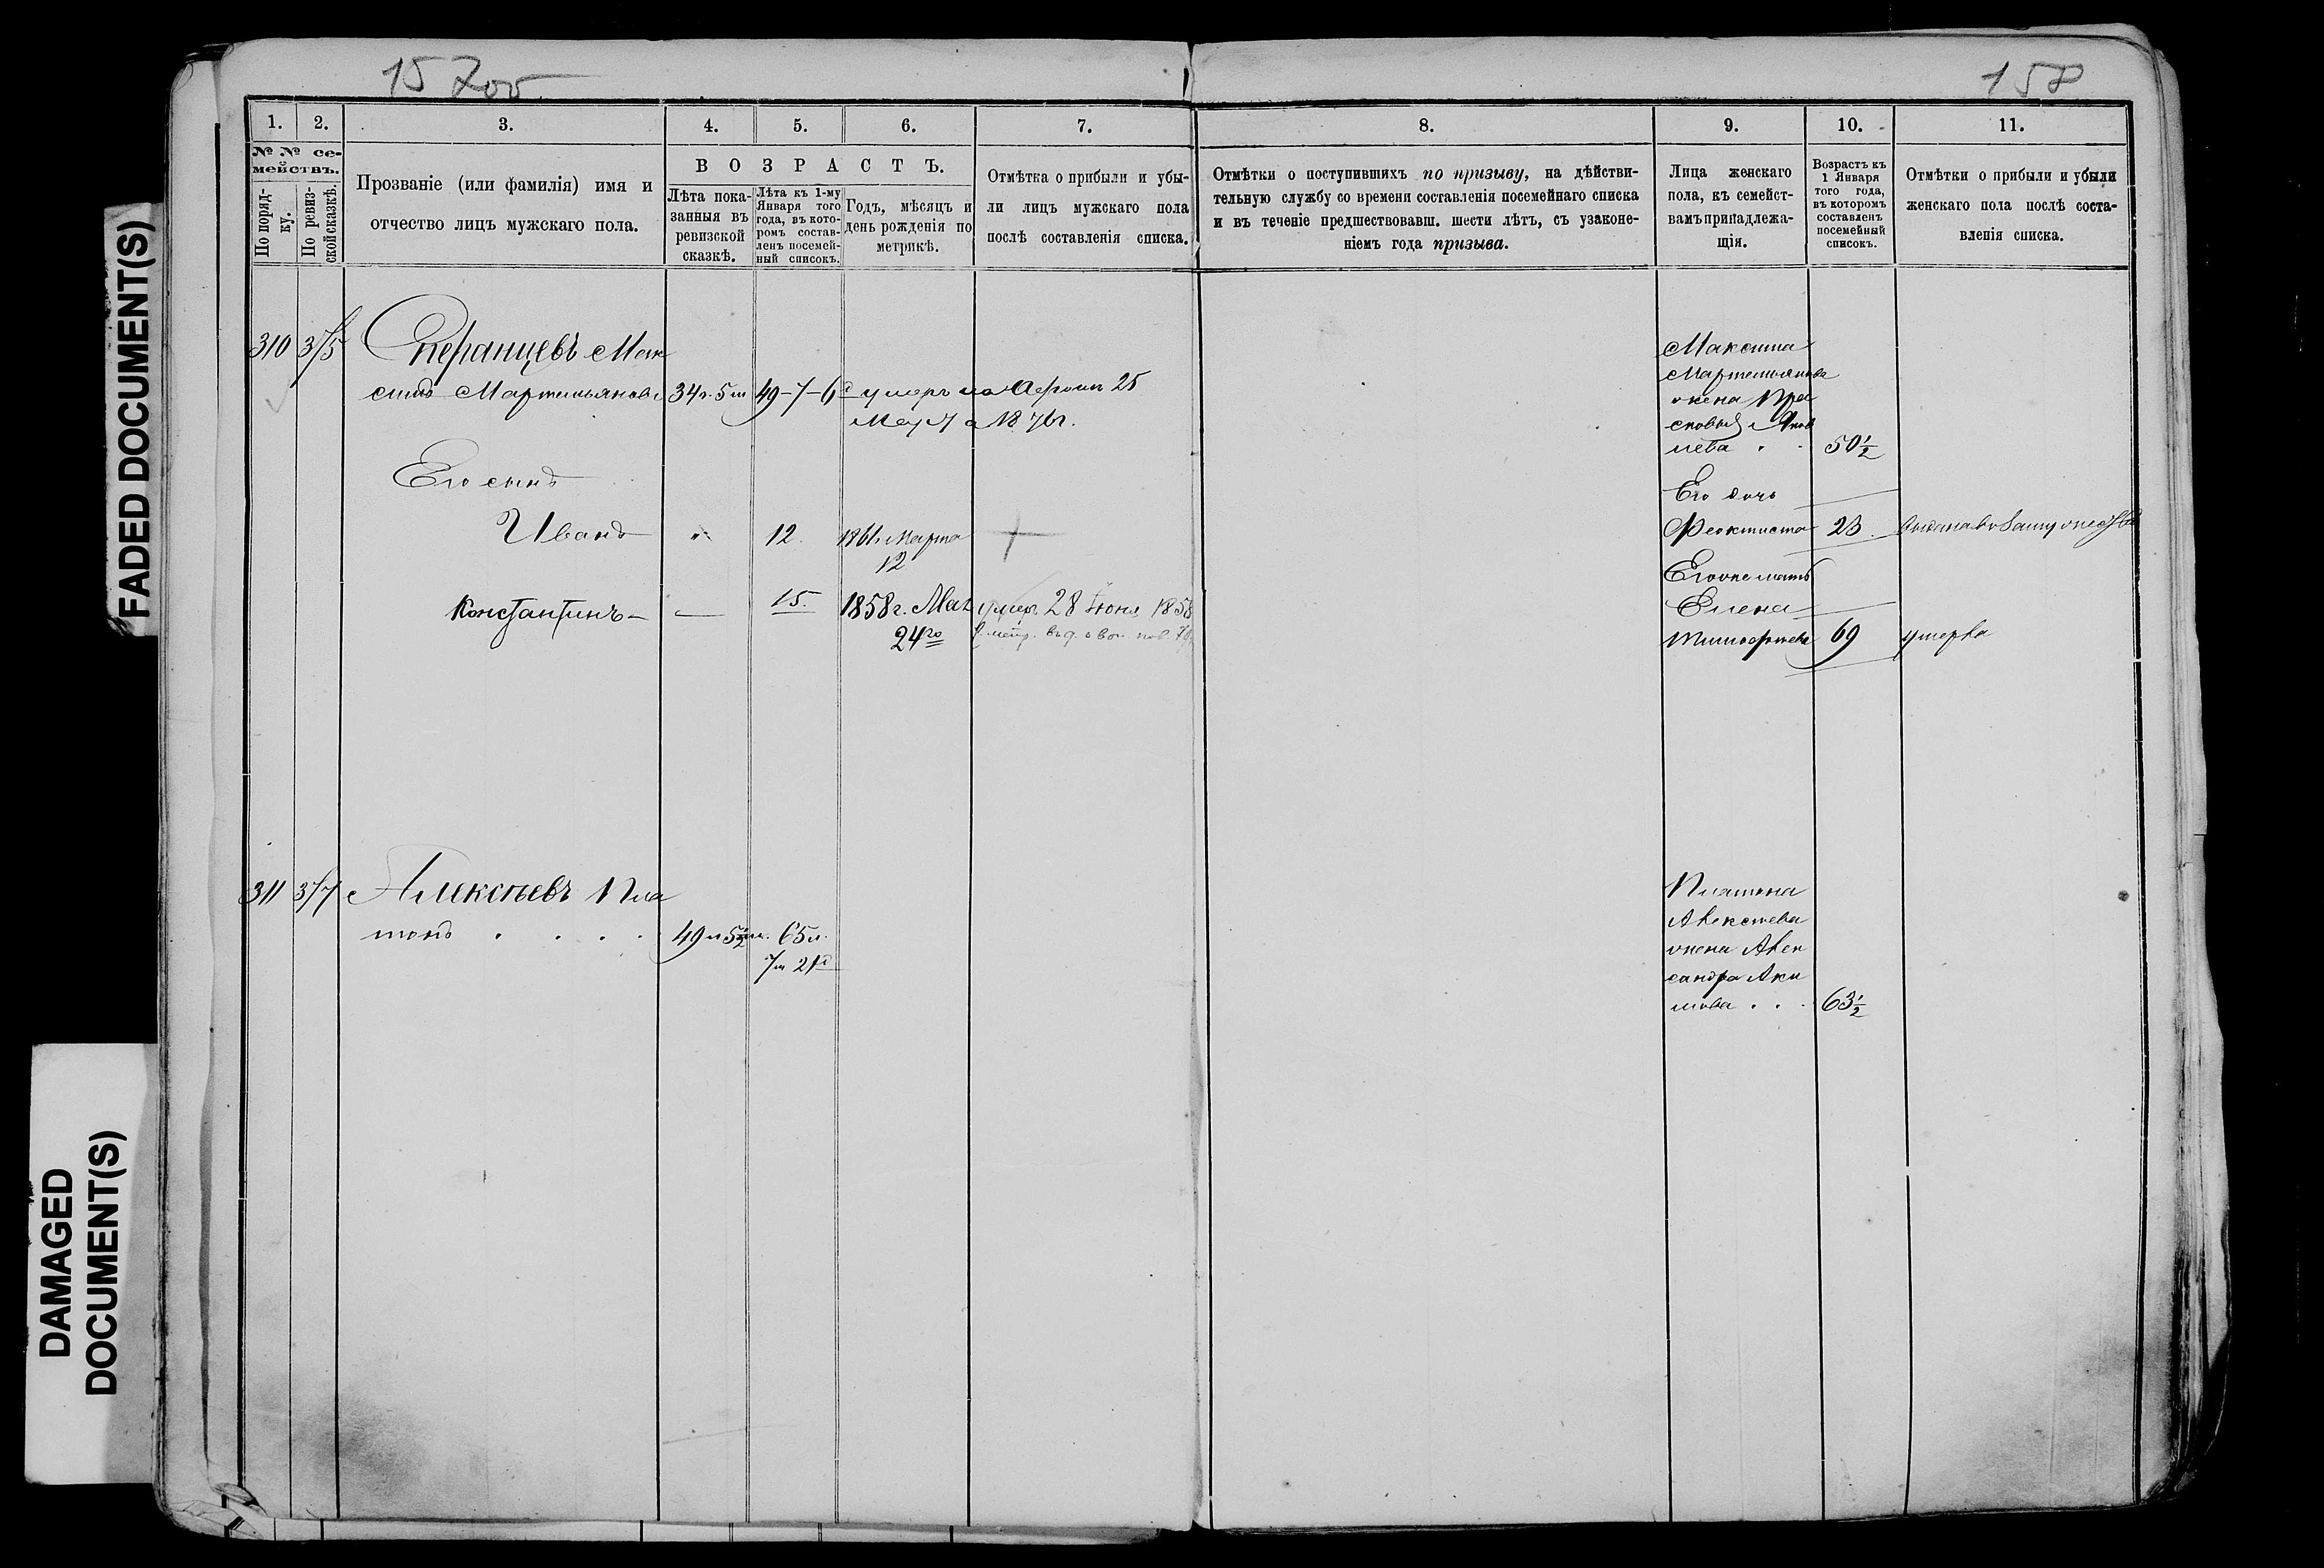 FADED DOCUMENT(S)
DAMAGED
DOCUMENT(S)
15
158
1. 2. 3. 4. 5. 6. 7. 8. 9. 10. 11.
№ № се-
мействъ.
По поряд-
ку.
По ревиз-
ской сказкѣ.
Прозваніе (или фамилія) имя и
отчество лицъ мужскаго пола.
ВОЗРАСТЪ.
Лѣта пока-
занныя въ
ревизской
сказкѣ.
Лѣта къ 1-му
Января того
года, въ кото-
ромъ состав-
ленъ посемей-
ный списокъ.
Годъ, мѣсяцъ и
день рожденія по
метрикѣ.
Отмѣтка о прибыли и убы-
ли лицъ мужскаго пола
послѣ составленія списка.
Отмѣтки о поступившихъ по призыву, на дѣйстви-
тельную службу со времени составленія посемейнаго списка
и въ теченіе предшествовавш. шести лѣтъ, съ узаконе-
ніемъ года призыва.
Лица женскаго
пола, къ семейст-
вамъ принадлежа-
щія.
Возрастъ къ
1 Января
того года,
въ которомъ
составленъ
посемейный
списокъ.
Отмѣтки о прибыли и убыли
женскаго пола послѣ соста-
вленія списка.
310 Мак
симъ Мартемьяновъ 34 г. 5 м 49-7-6 д умеръ 25
Марта 1876 г.
Его сынъ
Иванъ " 12. 1861 г. Марта
12
Константинъ — — 15. 1858 г. Мая умер. 28 Іюня 1858
24го
Максима
Мартемьянова
жена Пра
сковья Яков
лева 50 1/2
Его дочь
Феоктиста 23 Выдана въ замужество
Его же мать
Елена
Тимофеева 69 умерла
311 Алексѣевъ Пла
тонъ . . . . 49 л 5 1/2 м. 65 л.
7 м 21 д
Платона
Алексѣева
жена Алек
сандра Аки
мова . . . 63 1/2